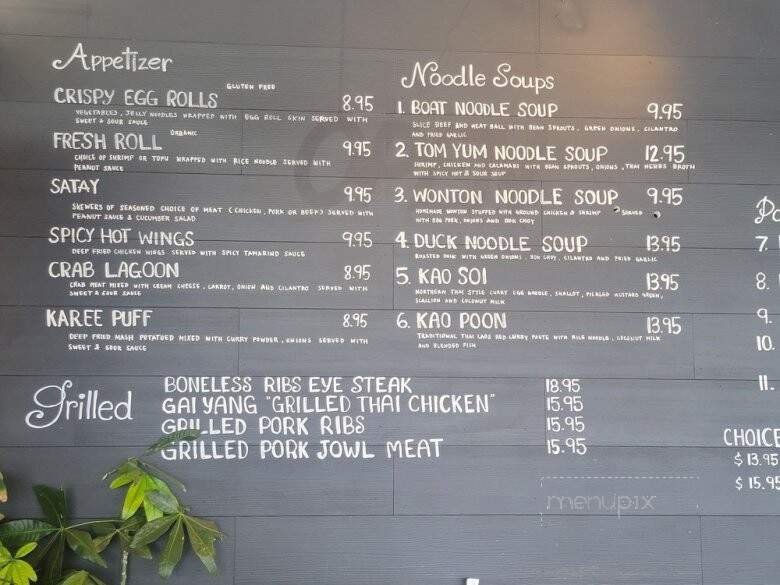 Appetizer
GLUTEN FREE
CRISPY EGG ROLLS 8.95
VEGETABLES, JELLY NOODLES WRAPPED WITH EGG ROLL SKIN SERVED WITH
SWEET & SOUR SAUCE
ORGANIC
FRESH ROLL 9.95
CHOICE OF SHRIMP OR TOFU WRAPPED WITH RICE NOODLE SERVED WITH
PEANUT SAUCE
SATAY 9.95
SKEWERS OF SEASONED CHOICE OF MEAT (CHICKEN, PORK OR BEEF) SERVED WITH
PEANUT SAUCE & CUCUMBER SALAD
SPICY HOT WINGS 9.95
DEEP FRIED CHICKEN WINGS SERVED WITH SPICY TAMARIND SAUCE
CRAB LAGOON 8.95
CRAB MEAT MIXED WITH CREAM CHEESE, CARROT, ONION AND CILANTRO SERVED WITH
SWEET & SOUR SAUCE
KAREE PUFF 8.95
DEEP FRIED MASH POTATOED MIXED WITH CURRY POWDER, ONIONS SERVED WITH
SWEET & SOUR SAUCE
Noodle Soups
1. BOAT NOODLE SOUP 9.95
SLICE BEEF AND MEAT BALL WITH BEAN SPROUTS, GREEN ONIONS, CILANTRO
AND FRIED GARLIC
2. TOM YUM NOODLE SOUP 12.95
SHRIMP, CHICKEN AND CALAMARI WITH BEAN SPROUTS, ONIONS, THAI HERBS BROTH
WITH SPICY HOT & SOUR SOUP
3. WONTON NOODLE SOUP 9.95
HOMEMADE WONTON STUFFED WITH GROUND CHICKEN & SHRIMP SERVED
WITH BBQ PORK, ONIONS AND BOK CHOY
4. DUCK NOODLE SOUP 13.95
ROASTED DUCK WITH GREEN ONIONS, BOK CHOY, CILANTRO AND FRIED GARLIC
5. KAO SOI 13.95
NORTHERN THAI STYLE CURRY EGG NOODLE, SHALLOT, PICKLED MUSTARD GREEN,
SCALLION AND COCONUT MILK
6. KAO POON 13.95
TRADITIONAL THAI LAOS RED CURRY PASTE WITH RICE NOODLE, COCONUT MILK
AND BLENDED FISH
7.
8.
9.
10.
11.
CHOICE
$ 13.95
$ 15.95
Grilled
BONELESS RIBS EYE STEAK 18.95
GAI YANG "GRILLED THAI CHICKEN" 15.95
GRILLED PORK RIBS 15.95
GRILLED PORK JOWL MEAT 15.95
menupix